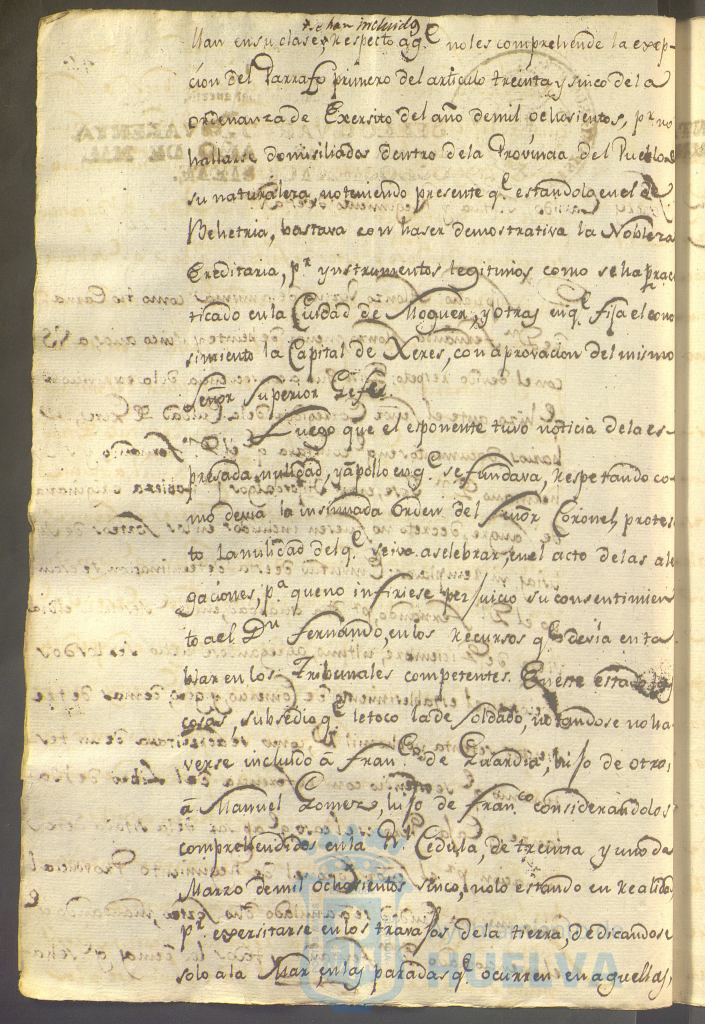 se han incluido
llan en su clase, respecto a q.e no les comprehende la exep-
cion del Parrafo primero del articulo treinta y sinco de la
Ordenanza de Exersito del año demil ochosientos, p.r no
hallarse domisiliados dentro dela Provincia del Pueblo de
su naturaleza, noteniendo presente q.e estandola en el de
Behetria, bastava con haser demostrativa la Nobleza
Ereditaria, p.r ynstrumentos legitimos como seha prac
ticado en la Ciudad de Moguer, y otras en q.e fija el cono
simiento la Capital de Xeres, con aprovacion del mismo
Señor Superior Gefe.
Luego que el esponente tuvo noticia dela es
presada nulidad, y apollo en q.e se fundava, respetando co-
mo devia la insinuada Orden del Señor Coronel, protes
to la nulidad del q.e se iva aselebrar, en el acto de las ale
gaciones, p.a queno infiriese perjuicio su consentimien
to a el D.n Fernando, en los recursos q.e devia enta
blar en los Tribunales competentes. En este estado de
cosas, subsedio q.e letoco la de Soldado, notandose no ha
verse incluido â Fran.co de Guardia, hijo de otro,
â Manuel Gomez, hijo de Fran.co considerandolos
comprehendidos en la R.l Cedula, de treinta y uno de
Marzo demil ochosientos senco, nolo estando en realidad
p.r exersitarse en los travajos de la tierra, dedicandose
solo ala Mar en las paradas q.e ocurren en aquellas,
HUELVA